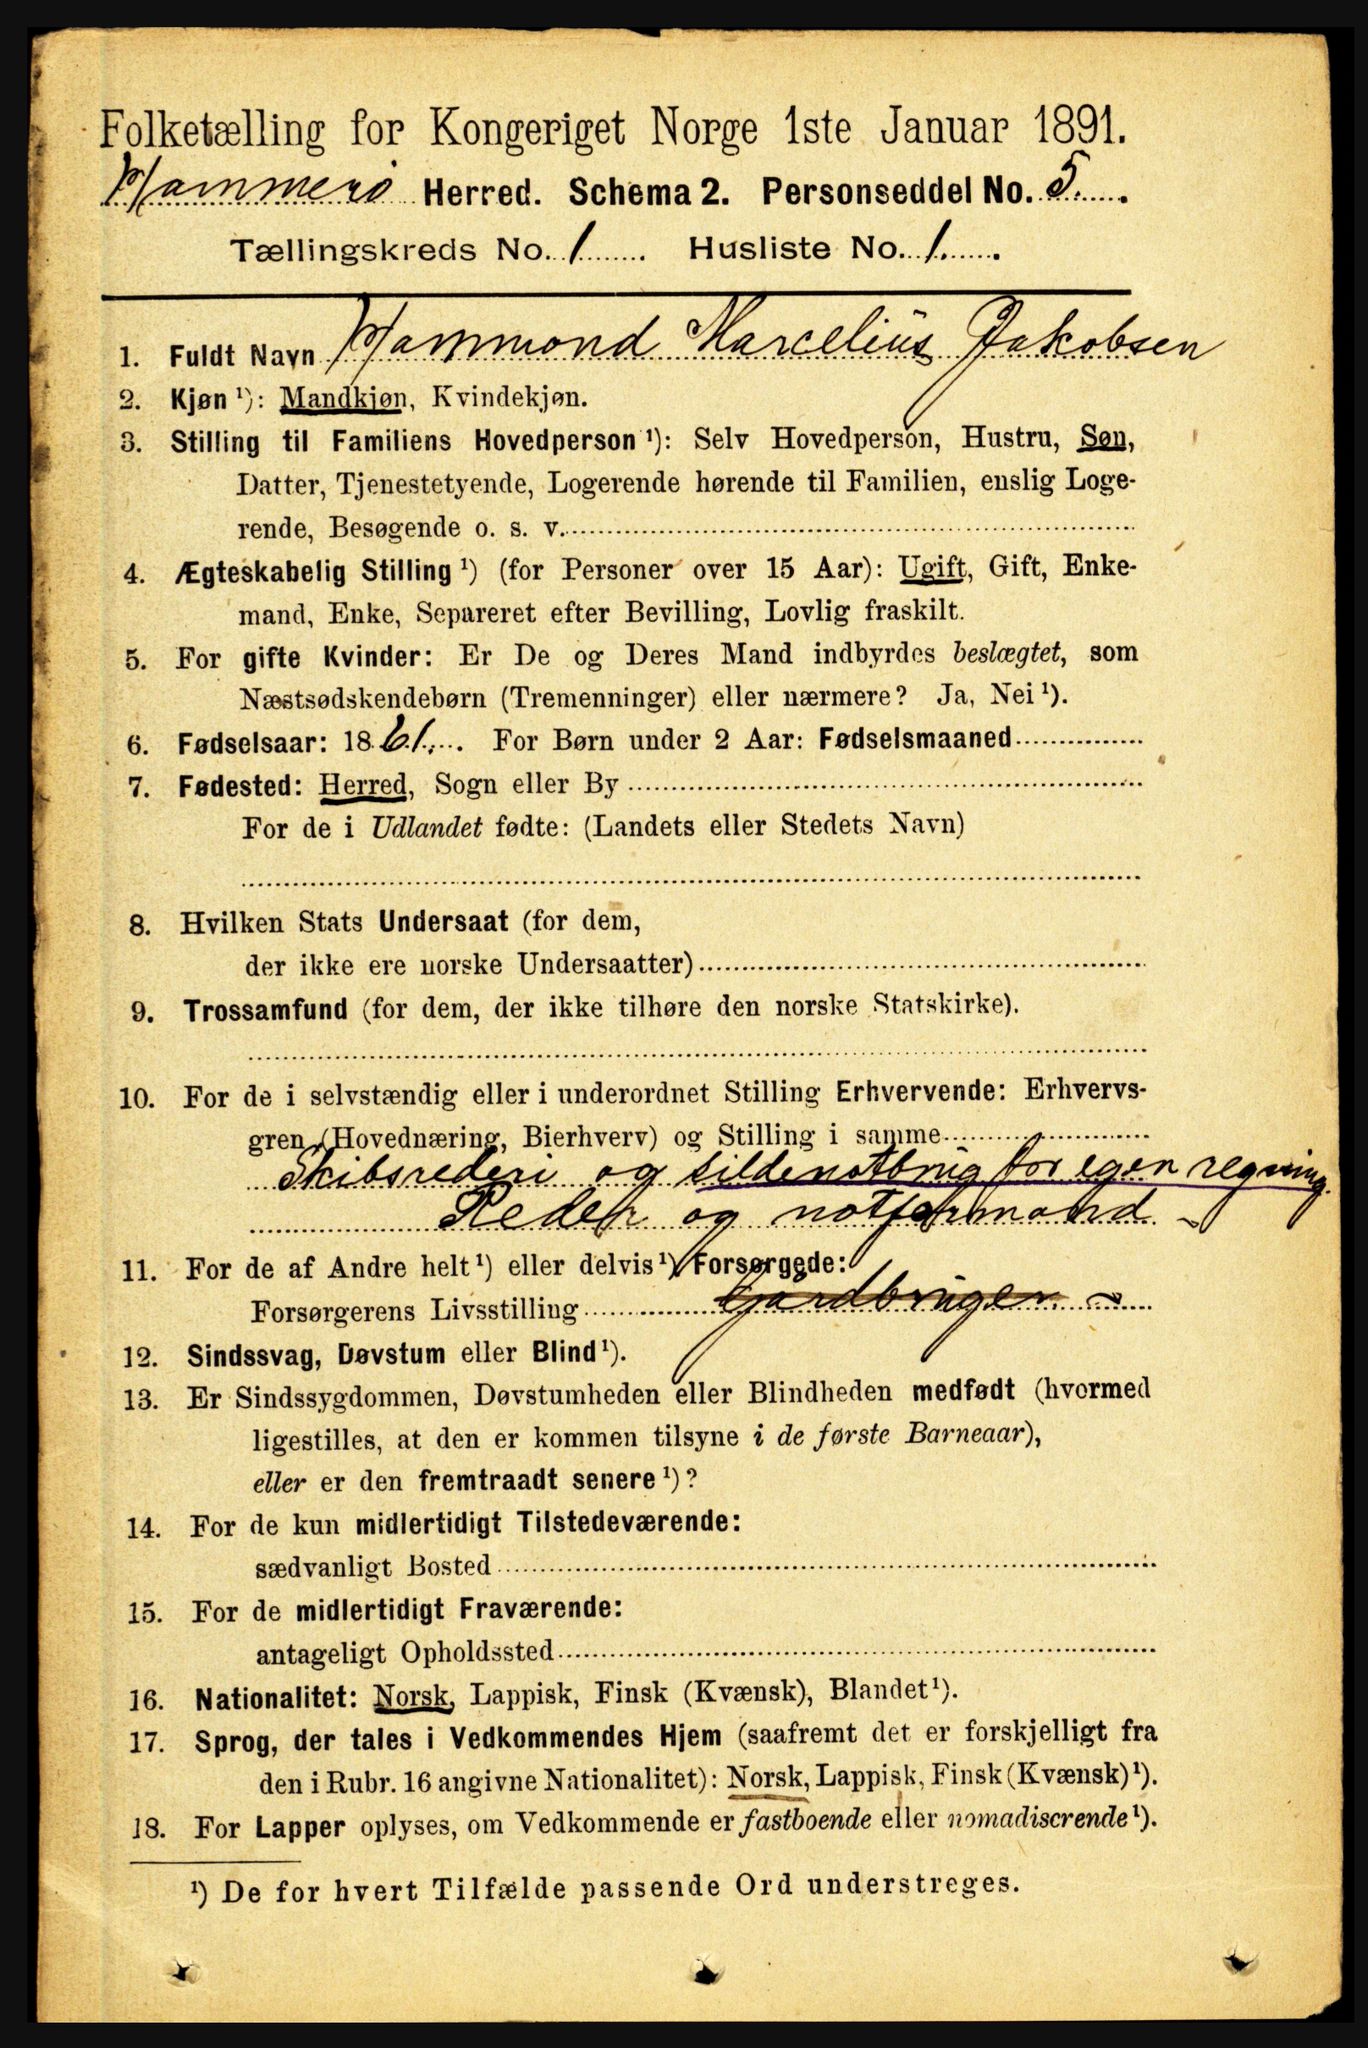 Folketælling for Kongeriget Norge 1ste Januar 1891.
Hammerö Herred. Schema 2. Personseddel No. 5.
Tællingskreds No. 1 Husliste No. 1.
1. Fuldt Navn Hammond Marcelius Jakobsen
2. Kjøn ¹): Mandkjøn, Kvindekjøn.
3. Stilling til Familiens Hovedperson ¹): Selv Hovedperson, Hustru, Søn,
Datter, Tjenestetyende, Logerende hørende til Familien, enslig Loge-
rende, Besøgende o. s. v.
4. Ægteskabelig Stilling ¹) (for Personer over 15 Aar): Ugift, Gift, Enke-
mand, Enke, Separeret efter Bevilling, Lovlig fraskilt.
5. For gifte Kvinder: Er De og Deres Mand indbyrdes beslægtet, som
Næstsødskendebørn (Tremenninger) eller nærmere? Ja, Nei ¹).
6. Fødselsaar: 1861. For Børn under 2 Aar: Fødselsmaaned
7. Fødested: Herred, Sogn eller By
For de i Udlandet fødte: (Landets eller Stedets Navn)
8. Hvilken Stats Undersaat (for dem,
der ikke ere norske Undersaatter)
9. Trossamfund (for dem, der ikke tilhøre den norske Statskirke).
10. For de i selvstændig eller i underordnet Stilling Erhvervende: Erhvervs-
gren (Hovednæring, Bierhverv) og Stilling i samme
Skibsrederi og sildenotbrug for egen regning.
Reder og notformand
11. For de af Andre helt ¹) eller delvis ¹) Forsørgede:
Forsørgerens Livsstilling Gårdbruger
12. Sindssvag, Døvstum eller Blind ¹).
13. Er Sindssygdommen, Døvstumheden eller Blindheden medfødt (hvormed
ligestilles, at den er kommen tilsyne i de første Barneaar),
eller er den fremtraadt senere ¹)?
14. For de kun midlertidigt Tilstedeværende:
sædvanligt Bosted
15. For de midlertidigt Fraværende:
antageligt Opholdssted
16. Nationalitet: Norsk, Lappisk, Finsk (Kvænsk), Blandet ¹).
17. Sprog, der tales i Vedkommendes Hjem (saafremt det er forskjelligt fra
den i Rubr. 16 angivne Nationalitet): Norsk, Lappisk, Finsk (Kvænsk) ¹).
18. For Lapper oplyses, om Vedkommende er fastboende eller nomadiserende ¹).
¹) De for hvert Tilfælde passende Ord understreges.